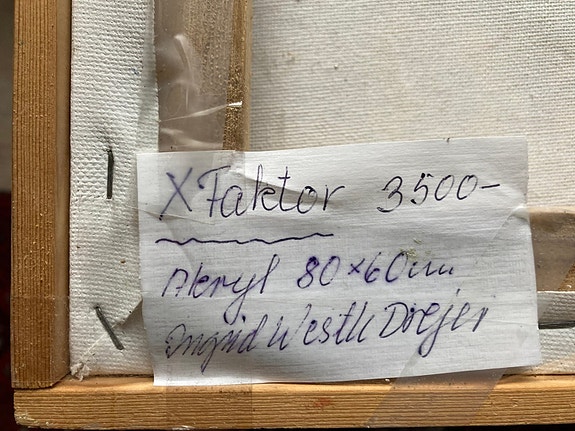 X Faktor 3500-
Akryl 80x60cm
Ingrid Westh Drejer